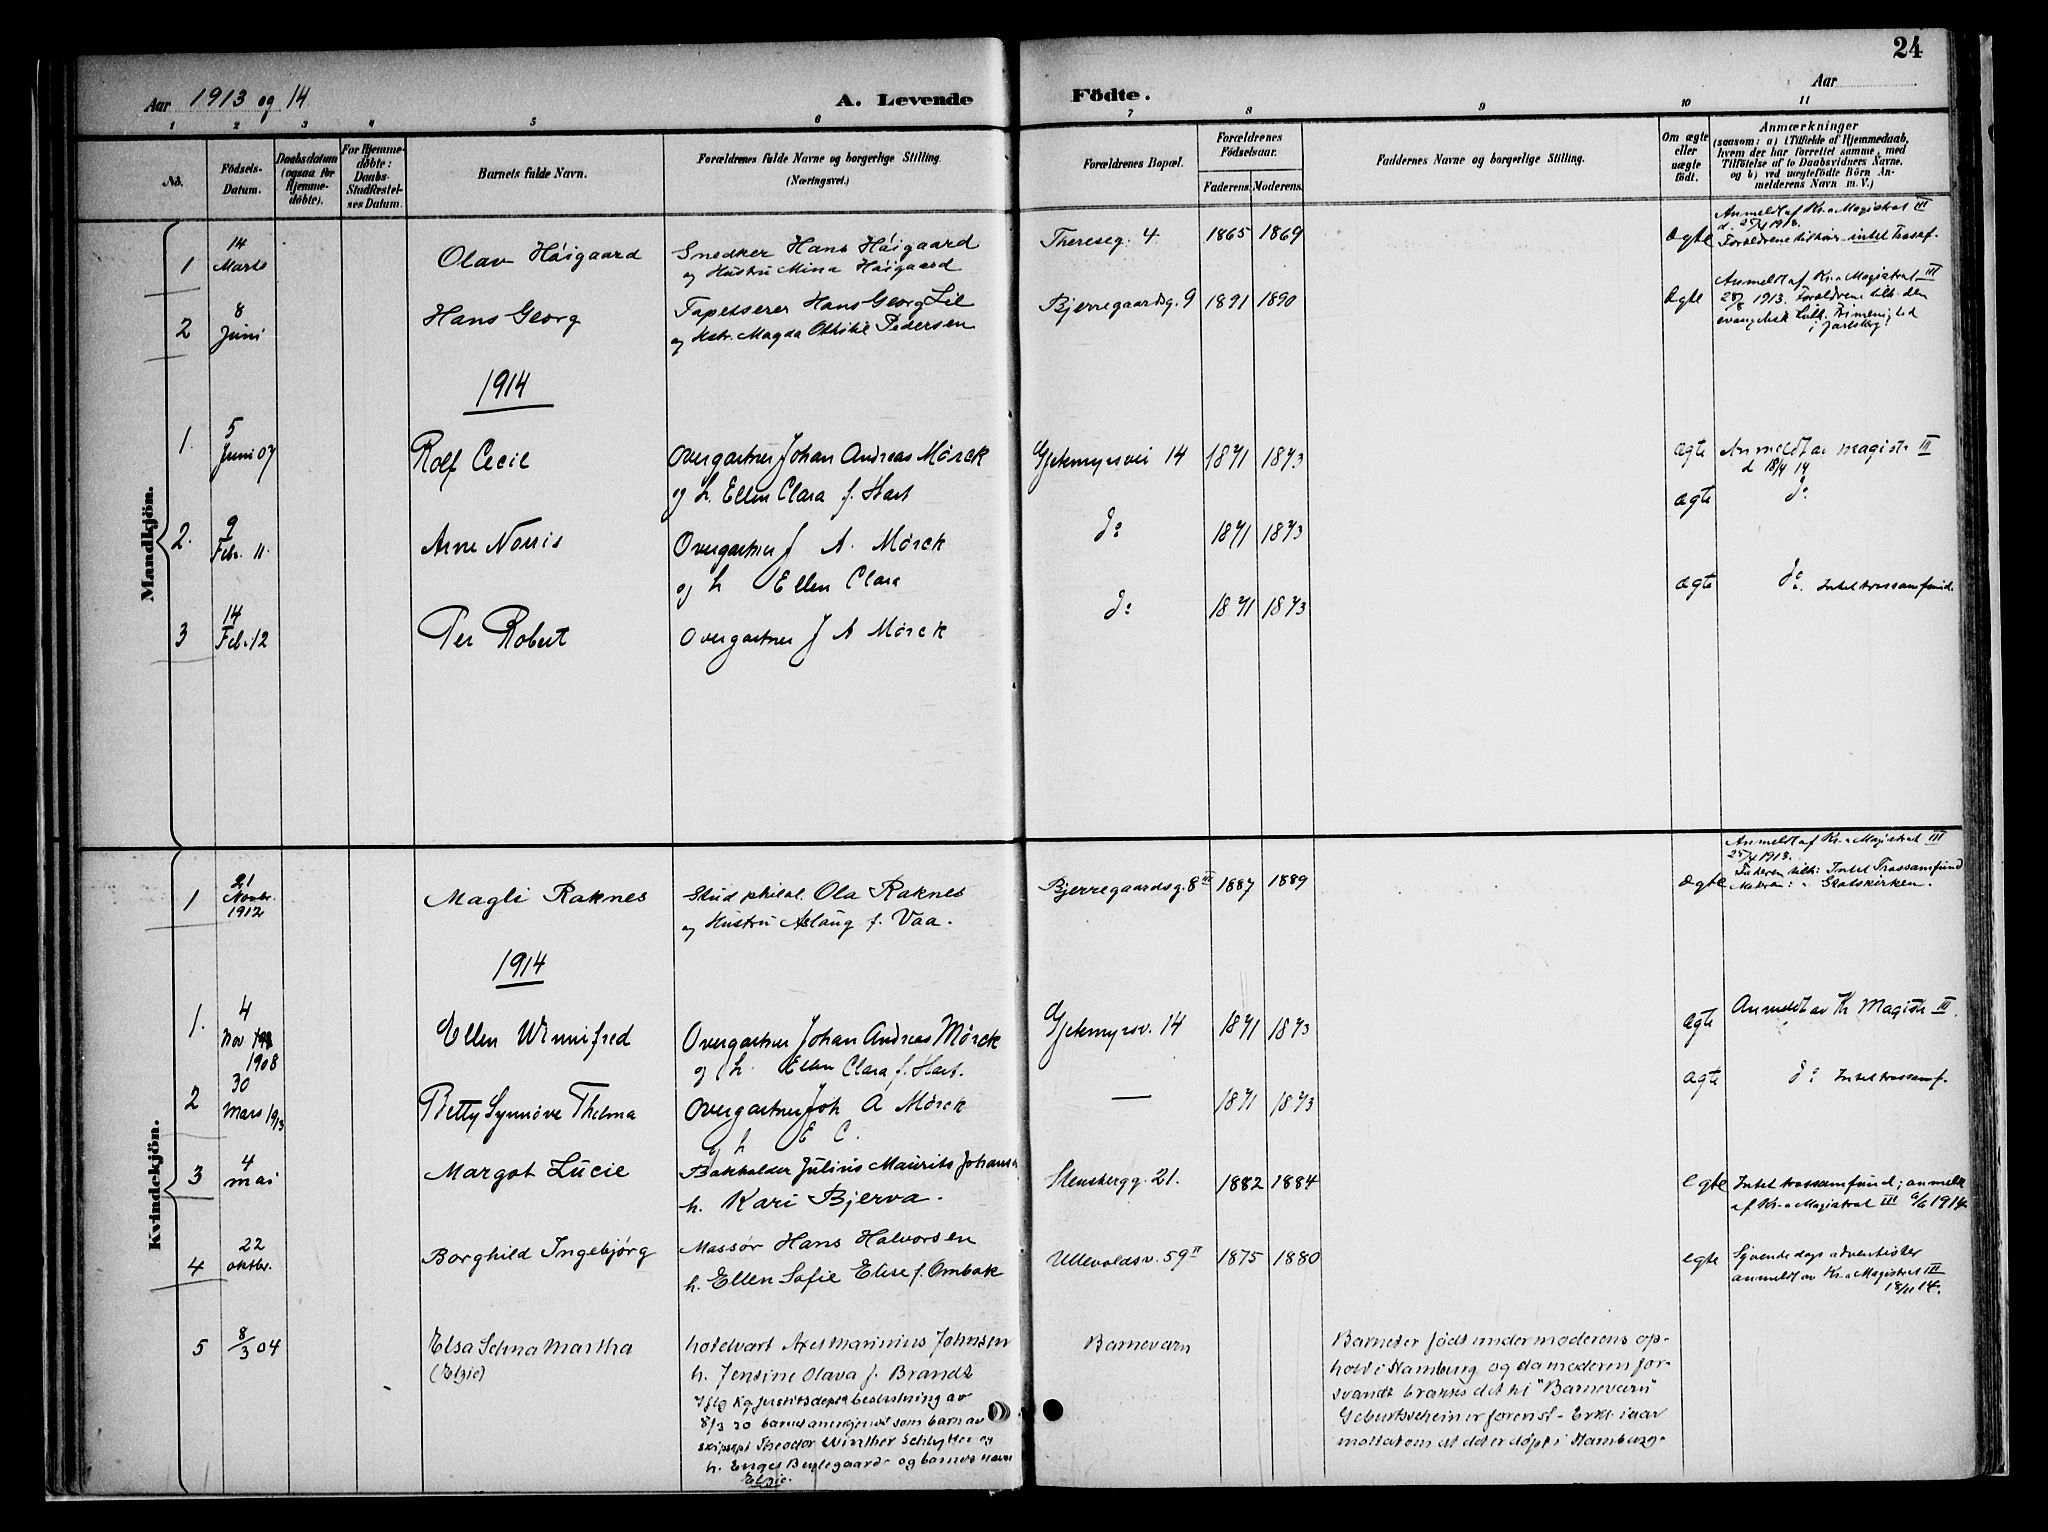 24
Aar 1913 og 14
A. Levende Födte.
Aar
1 2 3 4 5 6 7 8 9 10 11
No.
Födsels-Datum.
Daabsdatum (ogsaa for Hjemme-döbte).
For Hjemme-döbte: Daabs-Stadfæstel-ses Datum.
Barnets fulde Navn.
Forældrenes fulde Navne og borgerlige Stilling.
(Næringsvei.)
Forældrenes Bopæl.
Forældrenes Födselsaar.
Faderens. Moderens.
Faddernes Navne og borgerlige Stilling.
Om ægte eller uægte födt.
Anmærkninger
(saasom: a) i Tilfælde af Hjemmedaab,
hvem der har forrettet samme, med
Tilföielse af to Daabsvidners Navne,
og b) ved uægtefödte Börn An-
melderens Navn m. V.)
Mandkjön.
1 14 Marts Olav Höigaard Snedker Hans Höigaard Thereseg. 4 1865 1869 ægte Anmeldt af Kr.a Magistrat III
og Hustru Mina Höigaard d. 25/4 1913.
Forældrene tilhører intet Trossf.
2 8 Juni Hans Georg Tapetserer Hans Georg Lie Bjerregaardsg. 9 1891 1890 ægte Anmeldt af Kr.a Magistrat III
og Hstr. Magda Othilie Pedersen 28/8 1913. Forældrene tilh. den
evangelisk luth. Frimenighed
i Jarlsberg.
1914
1. 5 Juni 07 Rolf Cecil Overgartner Johan Andreas Mørck Gjetemyrsvei 14 1871 1873 ægte Anmeldt av magistr III
og h. Ellen Clara f. Hart d 18/4 14
2. 9 Feb. 11. Arne Norris Overgartner J A. Mørck do 1871 1873 ægte do
og h Ellen Clara
3 14 Feb. 12 Per Robert Overgartner J A Mørck do 1871 1873 ægte do. Intet trossamfund.
Kvindekjön.
1 21 Novbr. 1912 Magli Raknes Stud philol. Ola Raknes Bjerregaardsg. 8 III 1887 1889 ægte Anmeldt af Kr.a Magistrat III
og Hustru Aslaug f. Vaa. 25/4 1913.
Faderen tilh: Intet Trossamfund
Moderen: " Statskirken.
1914
1. 4 Nov 1908 Ellen Winnifred Overgartner Johan Andreas Mørck Gjetemyrsv. 14 1871 1873 ægte Anmeldt av Kr Magistr III.
og h. Ellen Clara f. Hart.
2 30 Mars 1913 Betty Synnøve Thelma Overgartner Joh A Mørck — 1871 1873 ægte do Intet trossamf.
og h E C.
3 4 mai Margot Lucie Bokholder Julius Maurits Johansen Stensbergg. 21. 1882 1884 egte Intet trossamfund; anmeldt
h. Kari Bjerva. af Kr.a Magistrat III 6/6 1914.
4 22 oktbr. Borghild Ingebjörg Massør Hans Halvorsen Ullevoldsv. 59 II 1875 1880 egte Syvende dags adventister
h. Ellen Sofie Elise f. Ombak anmeldt av Kr.a Magistrat III
18/11 14.
5 8/3 04 Elsa Selma Martha hotelvært Axel Marinius Johnsen Barnevarn Barnet er født under moderens op-
(Elzie) h. Jensine Olava f. Brandt hold i Hamburg og da moderen for-
Iflg Kg justitsdepts beslutning av svandt braktes det til "Barnevarn"
8/3 20 barnet anerkjendt som barn av Geburtsschein er forevist. Erkl. i aar
skipsept Theodor Winther Schlytter og mottat om at det er döpt i Hamburg.
h. Enger Bentegaard og barnets navn
Elzie.